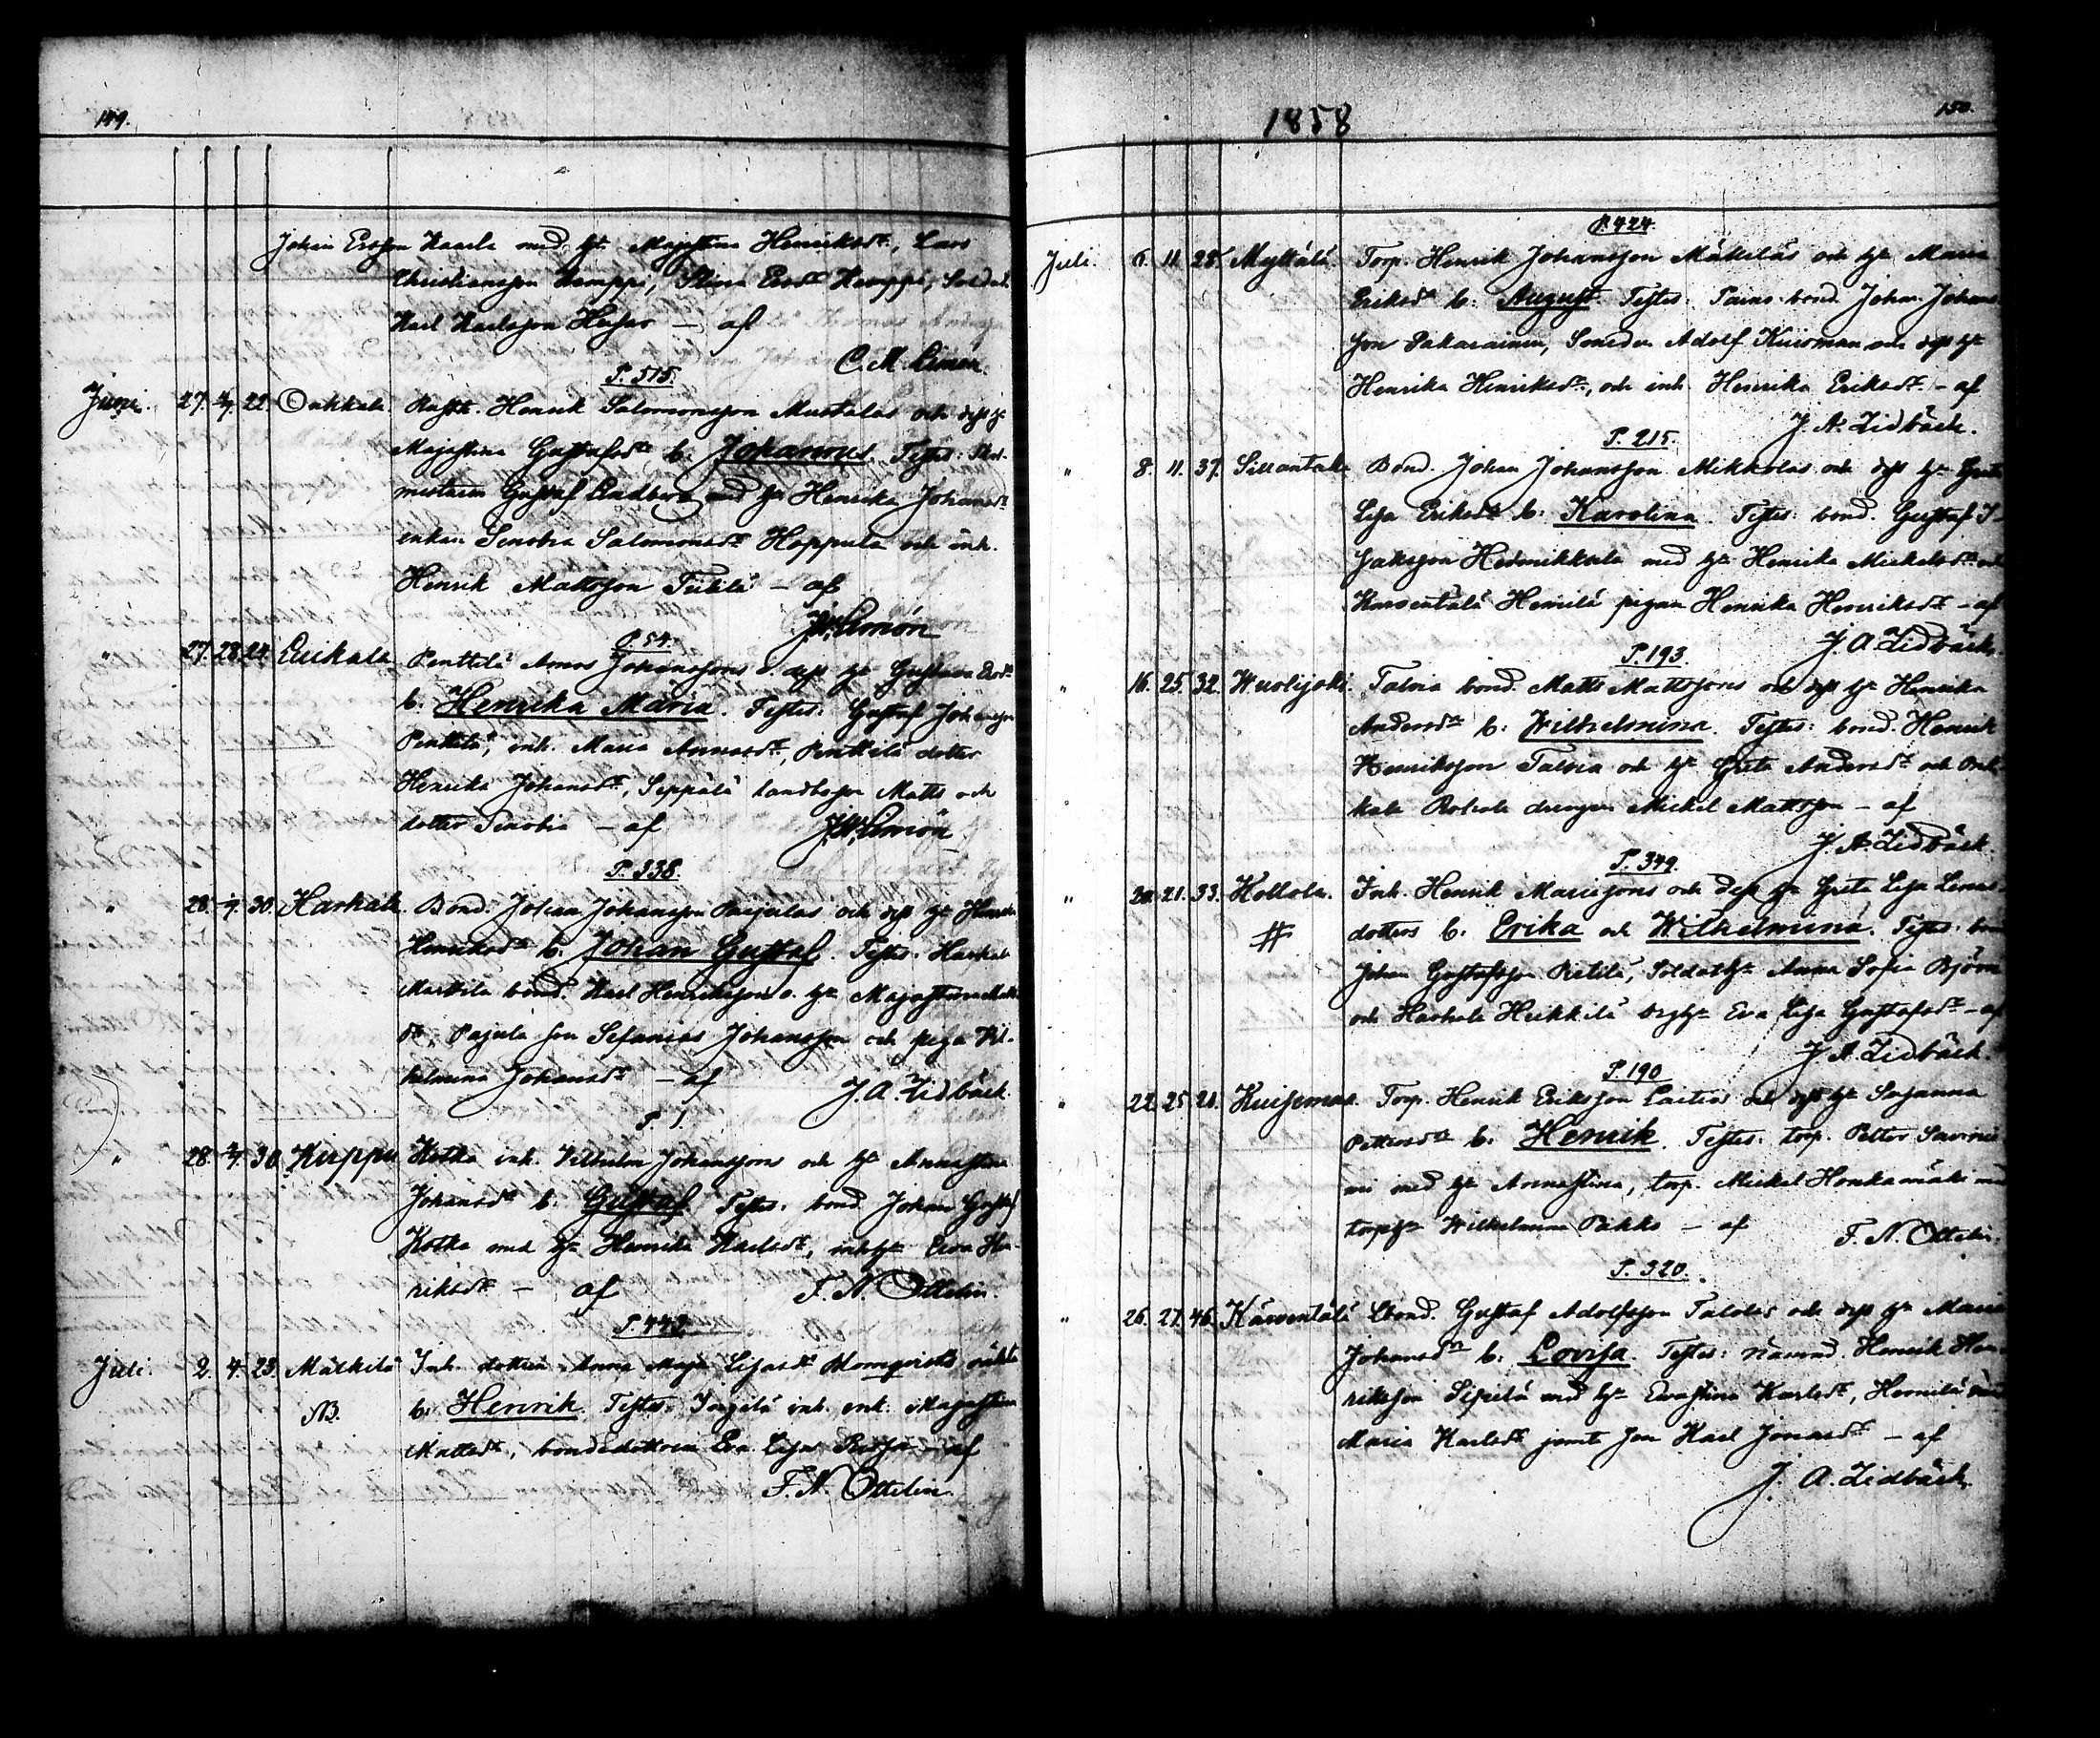 149.
Johan Ersson Kaarla med h:u Majastina Henriksd:r, Lars
Christiansson Kemppi, Stina Ersd:r Kemppi, Soldat
Karl Karlsson Husar — af
C. M. Limon.
P. 515.
Juni. 27. 4/7. 22. Oakkala. Rusth. Henrik Salomonsson Mustalas och dess h:u
Majastina Gustafsd:r b. Johannes. Testes:
Gustaf Lindberg med h:u Henrika Johansd:r
enkan Senobia Salomonsd:r Hoppula och inh.
Henrik Mattsson Tiitilä — af
J. W. Limón
P. 54.
" 27. 28. 24. Erikala Penttilä Amos Johanssons o. dess h:u Gustava Ersd:r
b. Henrika Maria. Testes: Gustaf Johansson
Penttilä, inh. Maria Annasd:r, Penttilä dotter
Henrika Johansd:r, Seppälä landbosson Matts och
dotter Senobia — af J. W. Limón
P. 338.
" 28. 4/7. 30. Harhala. Bond. Johan Johansson Pajulas och dess h:u Henrika
Henriksd:r b. Johan Gustaf. Testes: Harhala
Markila bond. Karl Henriksson o. h:u Majastina Matts
d:r, Pajula son Sefanias Johansson och piga Vil-
helmina Johansd:r — af J. A. Zidbäck.
P. 1
" 28. 4/7. 30. Kirppu Kotka inh. Vilhelm Johanssons och h:u Annastina
Johansd:r b. Gustaf. Testes: bond. Johan Gustafs
Kotka med h:u Henrika Karlsd:r, inhh:u Eva Hen-
riksd:r — af F. N. Ottelin.
P. 449.
Juli. 2. 4. 23. Mälkilä Inh. dottren Anna Maja Lisasd:r Blomqvists oäkta
NB. b. Henrik. Testes: inh. enk. Majastina
Mattsd:r, bondedottren Eva Lisa — af
F. N. Ottelin.
1858
150.
P. 424.
Juli. 6. 11. 28. Myttälä Torp. Henrik Johansson Mäkiläs och h:u Maria
Eriksd:r b: August. Testes: Paino bond. Johan Johans
son Pakarainen, Adolf Kuisman och dess h:u
Henrika Henriksd:r, och inh. Henrika Eriksd:r — af
J. A. Zidbäck.
P. 215.
" 8. 11. 37. Sillantaka Bond. Johan Johansson Mikkolas och dess h:u Greta
Lisa Eriksd:r b: Karolina. Testes: bond. Gustaf I-
saksson Hednikkala med h:u Henrika Mickelsd:r och
Karventälä Hemilä pigan Henrika Henriksd:r — af
J. A. Zidbäck.
P. 193.
" 16. 25. 32. Wuolijoki. Talvia bond. Matts Mattssons och dess h:u Henrika
Andersd:r b: Wilhelmina. Testes: bond. Henrik
Henriksson Talvia och h:u Greta Andersd:r och Onk-
kala Rohola drengen Mickel Mattsson — af
J. A. Zidbäck.
P. 349.
" 20. 21. 33. Kollola. Inh. Henrik Mariæsons och dess h:u Greta Lisa Lenas
# dotters b. Erika och Wilhelmina. Testes: bond
Johan Gustafsson Pietilä, Soldath:u Anna Sofia Björn
och Harhala Heikkilä Eva Lisa Gustafsd:r — af
J. A. Zidbäck.
P. 190
" 22. 25. 21. Kuisema. Torp. Henrik Eriksson Laitias och dess h:u Susanna
Pettersd:r b: Henrik. Testes: torp. Petter Savinie
mi med h:u Annastina, torp. Mickel Honkamäki med
torph:u Wilhelmina Pukko — af F. N. Ottelin.
P. 320.
" 26. 27. 46. Karventälä Lbond. Gustaf Adolfsson Talolas och dess h:u Maria
Johansd:r b: Lovisa. Testes: Nämnd. Henrik Hen-
riksson Sipilä med h:u Evastina Karlsd:r, Hemilä
Maria Karlsd:r jemte son Karl Jonasd:r — af
J. A. Zidbäck.